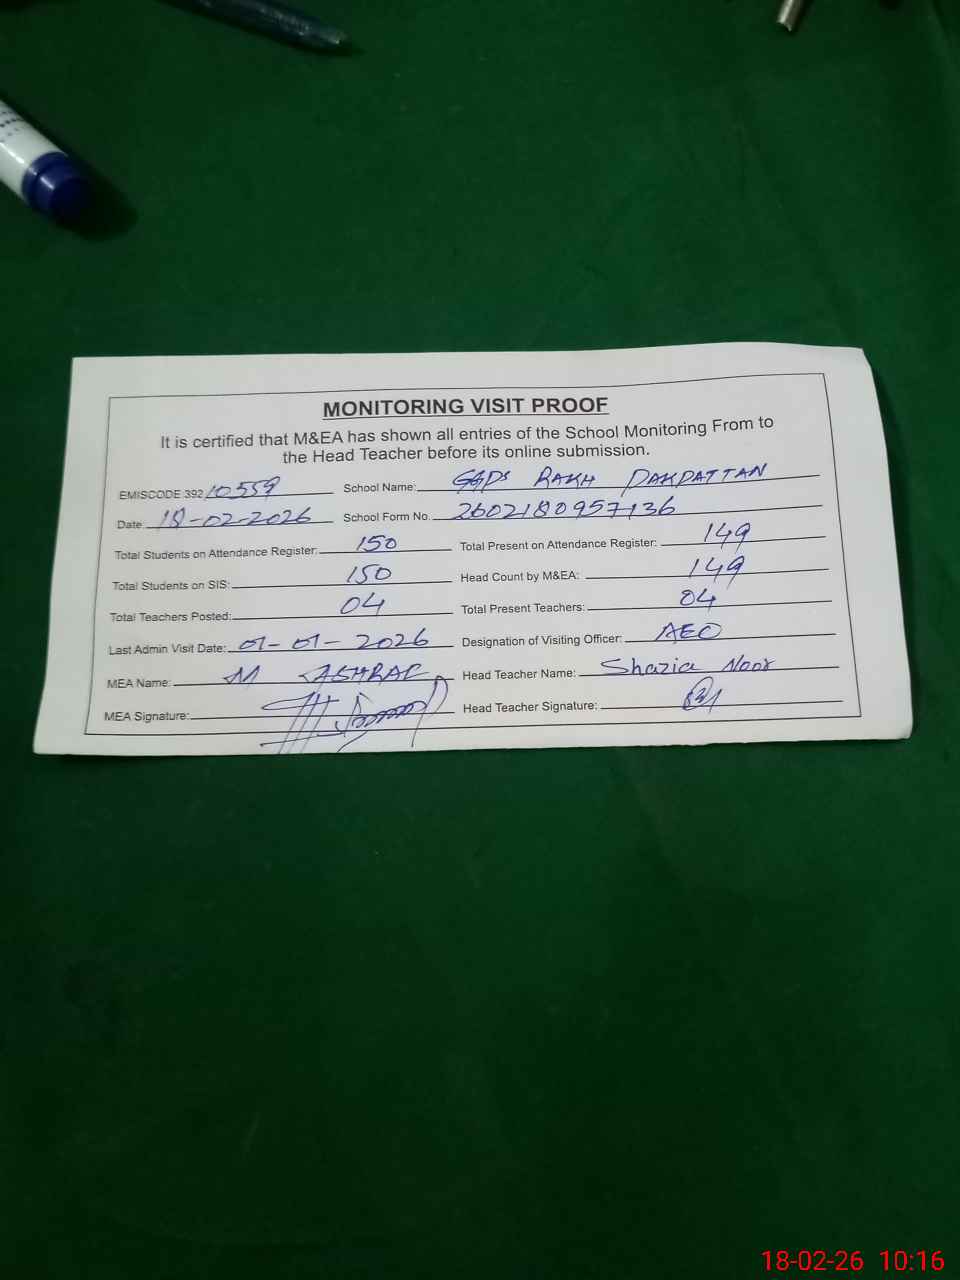 MONITORING VISIT PROOF
It is certified that M&EA has shown all entries of the School Monitoring From to
the Head Teacher before its online submission.
EMISCODE 392 10559 School Name: GGPS RAKH PAKPATTAN
Date: 18-02-2026 School Form No. 2602180957136
Total Students on Attendance Register: 150 Total Present on Attendance Register: 149
Total Students on SIS: 150 Head Count by M&EA: 149
Total Teachers Posted: 04 Total Present Teachers: 04
Last Admin Visit Date: 01-01-2026 Designation of Visiting Officer: AEO
MEA Name: M ASHRAF Head Teacher Name: Shazia Noor
MEA Signature: Head Teacher Signature:
18-02-26 10:16